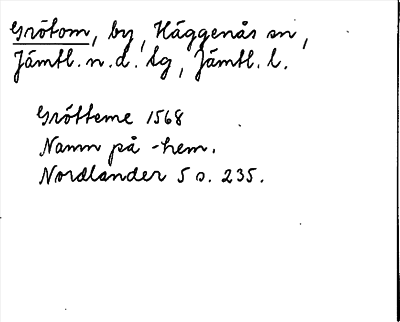 Grötom, by, Häggenås sn,
Jämtl. n. d. tg, Jämtl. l.
Grötteme 1568
Namn på -hem.
Nordlander 5 s. 235.